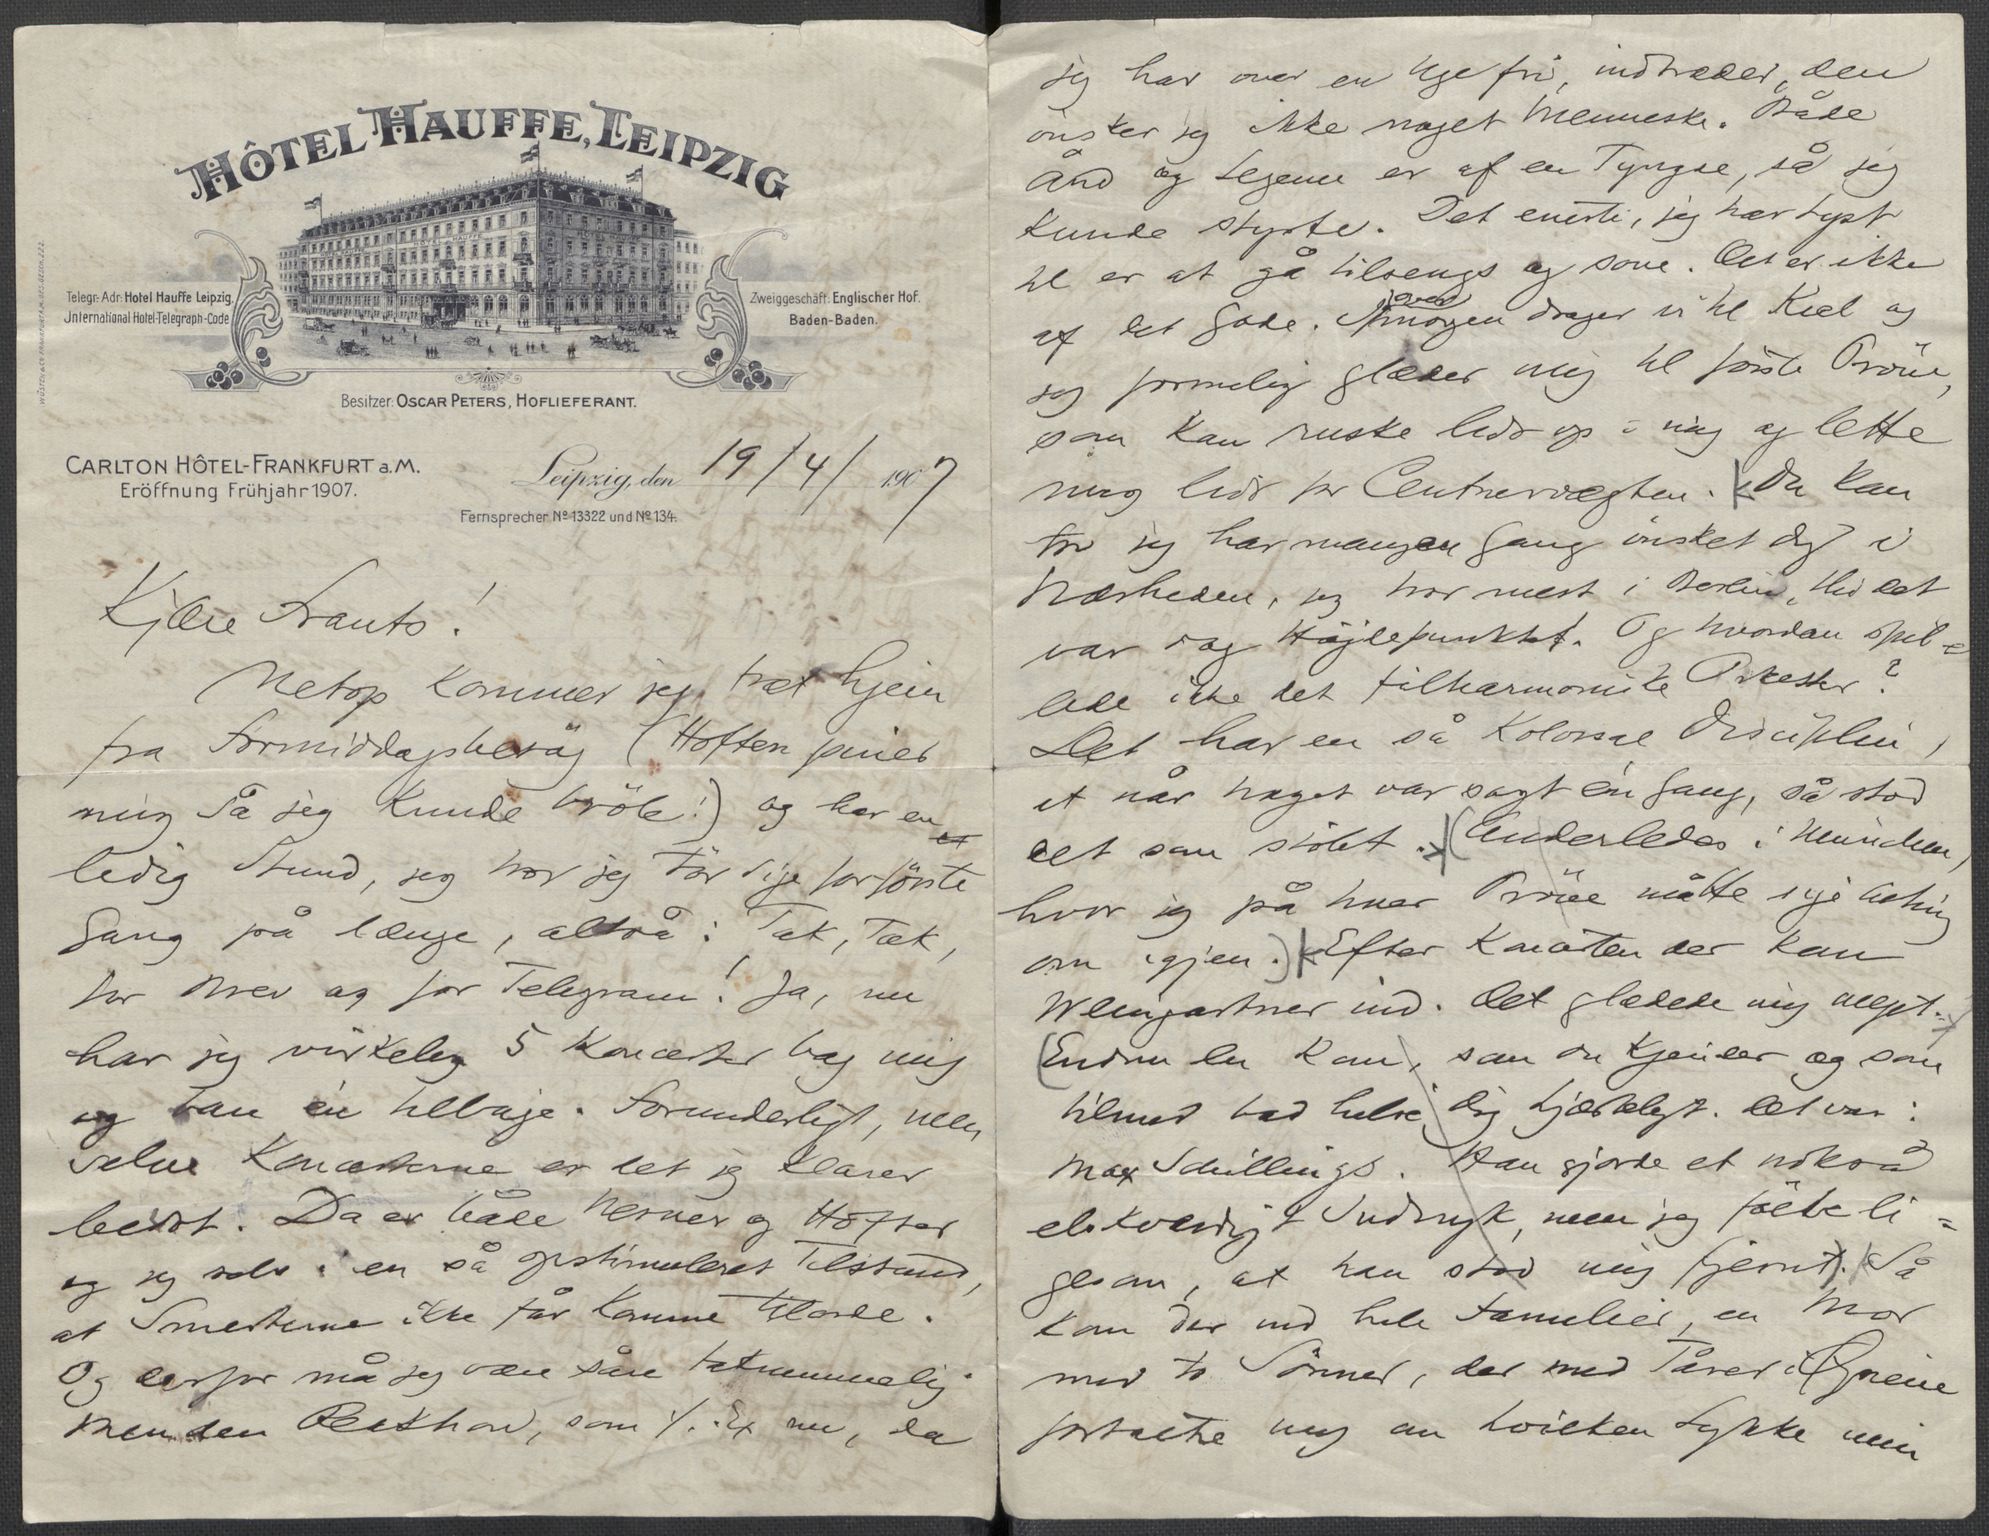 HÔTEL HAUFFE, LEIPZIG
Telegr.-Adr: Hotel Hauffe Leipzig.
International Hotel-Telegraph-Code
Zweiggeschäft: Englischer Hof.
Baden-Baden.
Besitzer: OSCAR PETERS, HOFLIEFERANT.
CARLTON HÔTEL-FRANKFURT a.M.
Eröffnung Frühjahr 1907.
Leipzig, den 19/4/ 1907
Fernsprecher No 13322 und No 134.
Kjære Frants!
Netop kommer jeg træt hjem
fra Formiddagsbesøg (Hoften piner
mig så jeg kunde brøle!) og har en
ledig Stund, jeg tror jeg tør sige for første
Gang på længe, altså: Tak, Tak,
for Brev og for Telegram! Ja, nu
har jeg virkelig 5 Koncerter bag mig
og kun én tilbage. Forunderligt, men
selve Koncerterne er det jeg klarer
bedst. Da er både Nerver og Hofter
og jeg selv i en så opstimuleret Tilstand,
at Smerterne ikke får komme tilorde.
Og derfor må jeg være såre taknemmelig
Men den Reaktion, som f. Ex nu, da
jeg har over en Uge fri, indtræder, den
ønsker jeg ikke noget Menneske. Både
Ånd og Legeme er af en Tyngde, så jeg
kunde styrte. Det eneste, jeg har Lyst
til er at gå tilsengs og sove. Det er ikke
af det gode. Overmorgen drager vi til Kiel og
jeg formelig glæder mig til første Prøve,
som kan ruske lidt op i mig og lette
mig lidt for Centnervægten. Du kan
tro jeg har mangen Gang ønsket dig i
Nærheden, jeg tror mest i Berlin, thi det
var dog Højdepunktet. Og hvordan spil=
lede ikke det filharmoniske Orkester?
Det har en så kolossal Disciplin,
at når noget var sagt én Gang, så stod
det som støbt. (Anderledes i München,
hvor jeg på hver Prøve måtte sige alting
om igjen.) Efter Koncerten der kom
Weingartner ind. Det glædede mig meget.
(Endnu en kom, som du kjender og som
tilmed bad hilse dig hjerteligt. Det var:
Max Schillings. Han gjorde et nokså
elskværdigt Indtryk, men jeg følte li=
gesom, at han stod mig fjernt). Så
kom der ind hele Familier, en Mor
med to Sønner, der med Tårer i Øjnene
fortalte mig om hvilken Lykke min